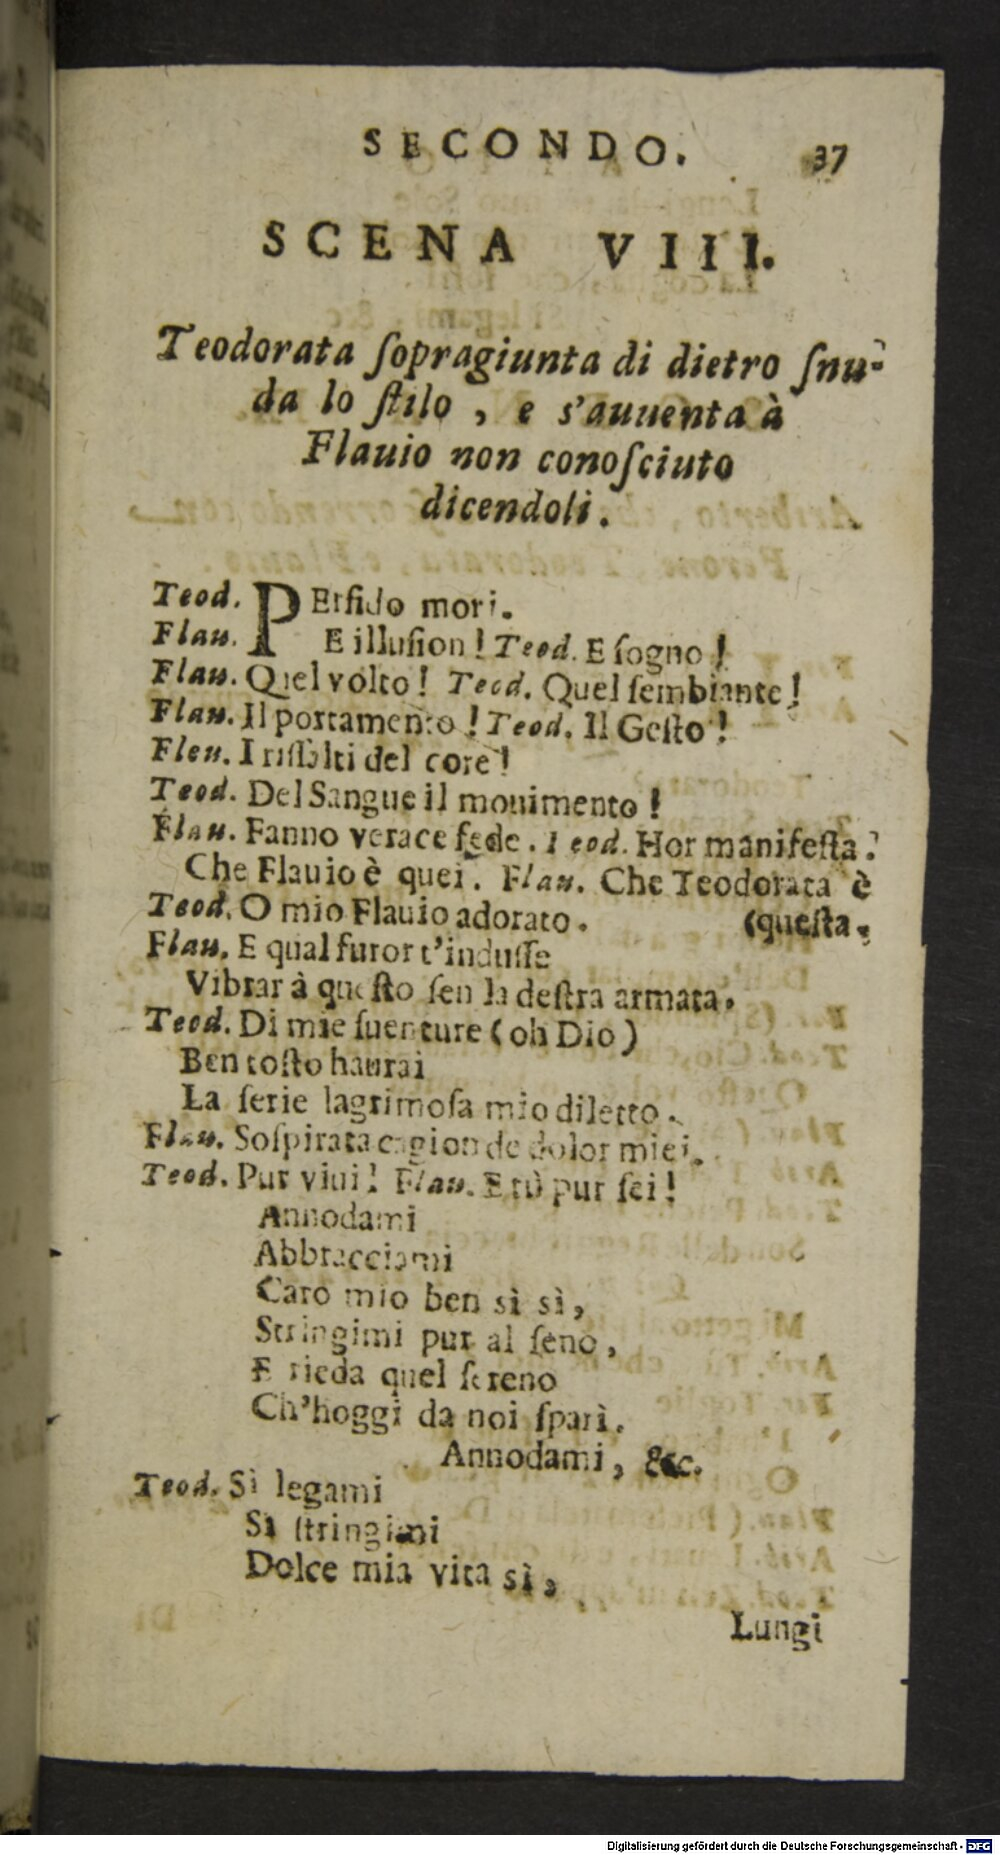 SECONDO. 37
SCENA VIII.
Teodorata ſopragiunta di dietro ſnu-
da lo ſtilo , e s'auuenta à
Flauio non conoſciuto
dicendoli.
Teod. PErfido mori.
Flau. E illuſion ! Teod. E ſogno !
Flau. Quel volto ! Teod. Quel ſembiante !
Flau. Il portamento ! Teod. Il Geſto !
Fleu. I riſſalti del core !
Teod. Del Sangue il mouimento !
Flau. Fanno verace fede. Teod. Hor manifeſta.
Che Flauio è quei. Flau. Che Teodorata è
Teod. O mio Flauio adorato. (queſta.
Flau. E qual furor t'induſſe
Vibrar à queſto ſen la deſtra armata.
Teod. Di mie ſuenture (oh Dio)
Ben toſto haurai
La ſerie lagrimoſa mio diletto.
Flau. Soſpirata cagion de dolor miei.
Teod. Pur viui ! Flau. E tù pur ſei !
Annodami
Abbracciami
Caro mio ben sì sì,
Stringimi pur al ſeno,
E rieda quel ſereno
Ch'hoggi da noi ſparì.
Annodami, &c.
Teod. Sì legami
Sì ſtringimi
Dolce mia vita sì,
Lungi
Digitalisierung gefördert durch die Deutsche Forschungsgemeinschaft - DFG